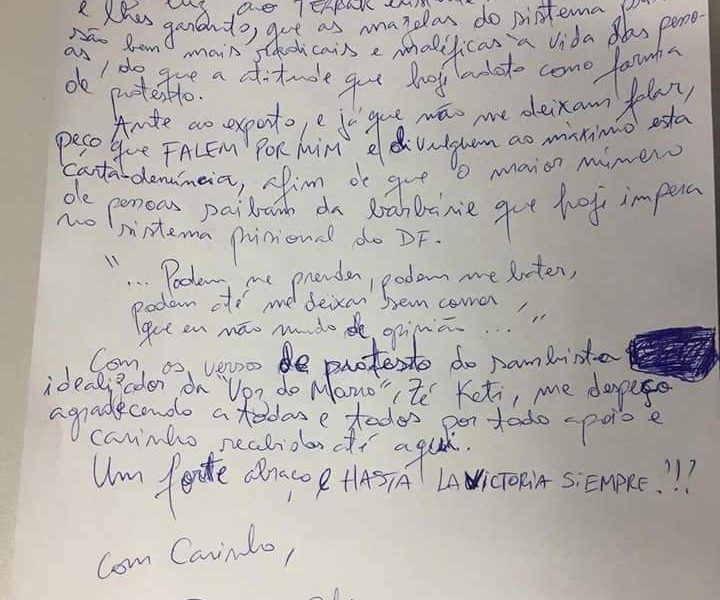 e lhes luz ao TERROR
e lhes garanto, que as mazelas do sistema
são bem mais radicais e maléficas à vida das pesso-
as, do que a atitude que hoje adoto como forma
de protesto.
Ante ao exposto, e já que não me deixam falar,
peço que FALEM POR MIM e divulguem ao máximo esta
carta-denúncia, afim de que o maior número
de pessoas saibam da barbárie que hoje impera
no sistema prisional do DF.
"... Podem me prender, podem me bater,
podem até me deixar sem comer,
que eu não mudo de opinião ..."
Com os versos de protesto do sambista
idealizador da "Voz do Morro", Zé Keti, me despeço
agradecendo a todas e todos por todo apoio e
carinho recebidos até aqui.
Um forte abraço, e HASTA LA VICTORIA SIEMPRE!!!
Com Carinho,